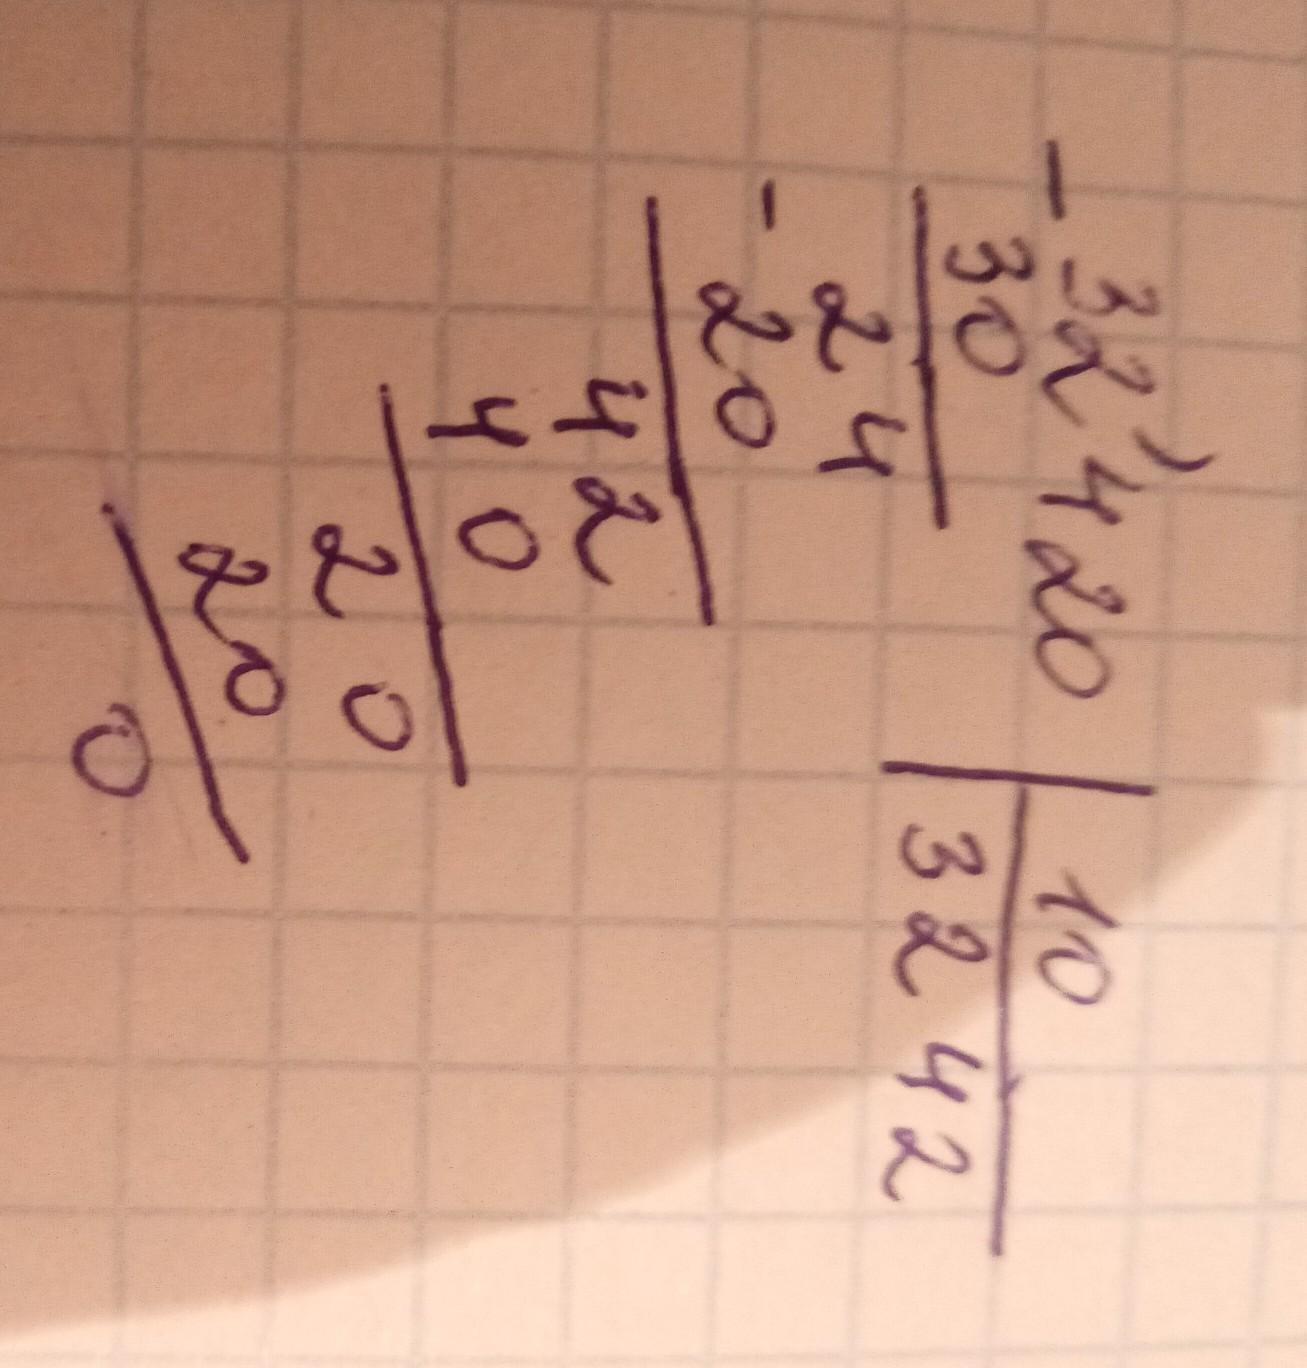 - 32'420 | 10
30 | 3242
- 24
20
42
40
20
20
0